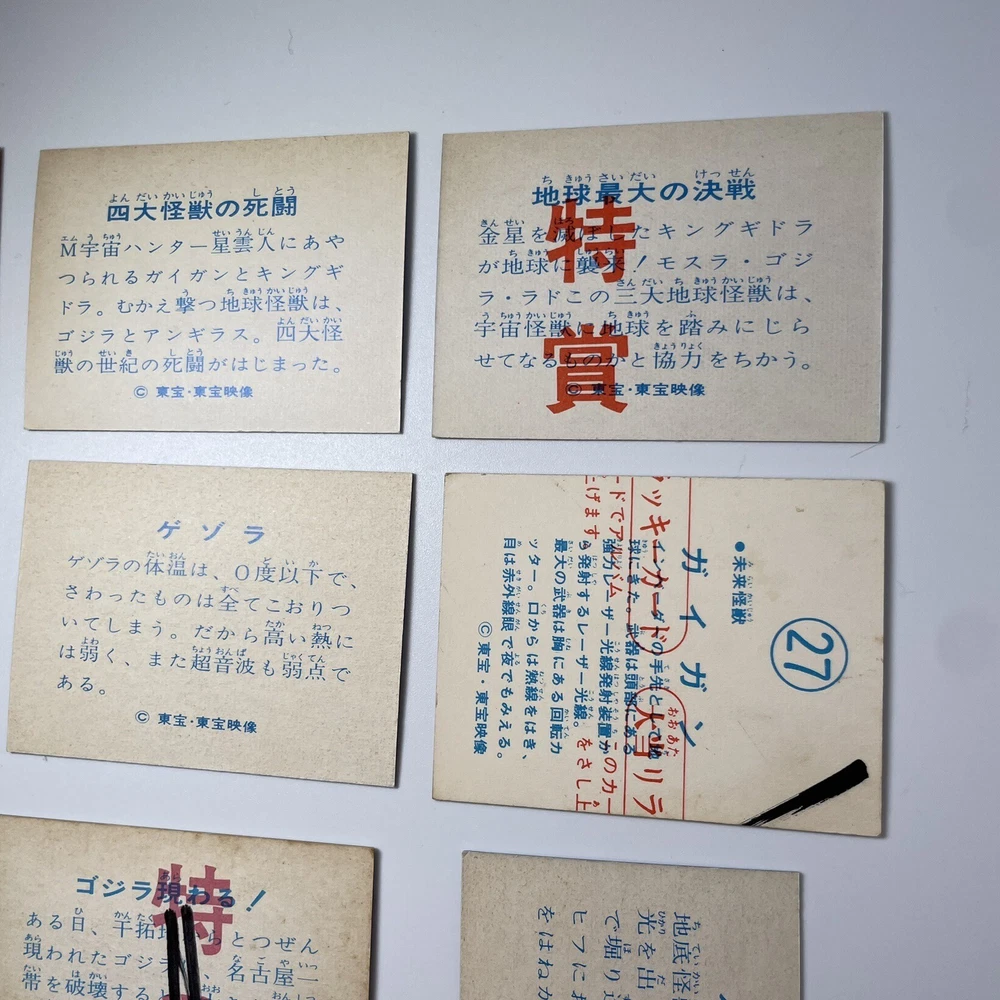 四大怪獣の死闘
M宇宙ハンター星雲人にあや
つられるガイガンとキングギ
ドラ。むかえ撃つ地球怪獣は、
ゴジラとアンギラス。四大怪
獣の世紀の死闘がはじまった。
© 東宝・東宝映像
地球最大の決戦
金星を滅ぼしたキングギドラ
が地球に襲来!モスラ・ゴジ
ラ・ラドこの三大地球怪獣は、
宇宙怪獣に地球を踏みにじら
せてなるものかと協力をちかう。
© 東宝・東宝映像
特賞
ゲゾラ
ゲゾラの体温は、0度以下で、
さわったものは全てこおりつ
いてしまう。だから高い熱に
は弱く、また超音波も弱点で
ある。
© 東宝・東宝映像
27
●未来怪獣
ガイガン
の手先として地
球にきた。武器は頭部にある
強力レーザー光線発射装置か
ら発射するレーザー光線。
最大の武器は胸にある回転カ
ッター。口からは熱線をはき、
目は赤外線眼で夜でもみえる。
© 東宝・東宝映像
ラッキーカード
大当り
ードでアルバム
このカー
をさし上
げます
ゴジラ現わる!
ある日、干拓 とつぜん
現われたゴジラ 、名古屋一
帯を破壊する
特
地底怪
光を出
で堀り
ヒフに
をはね